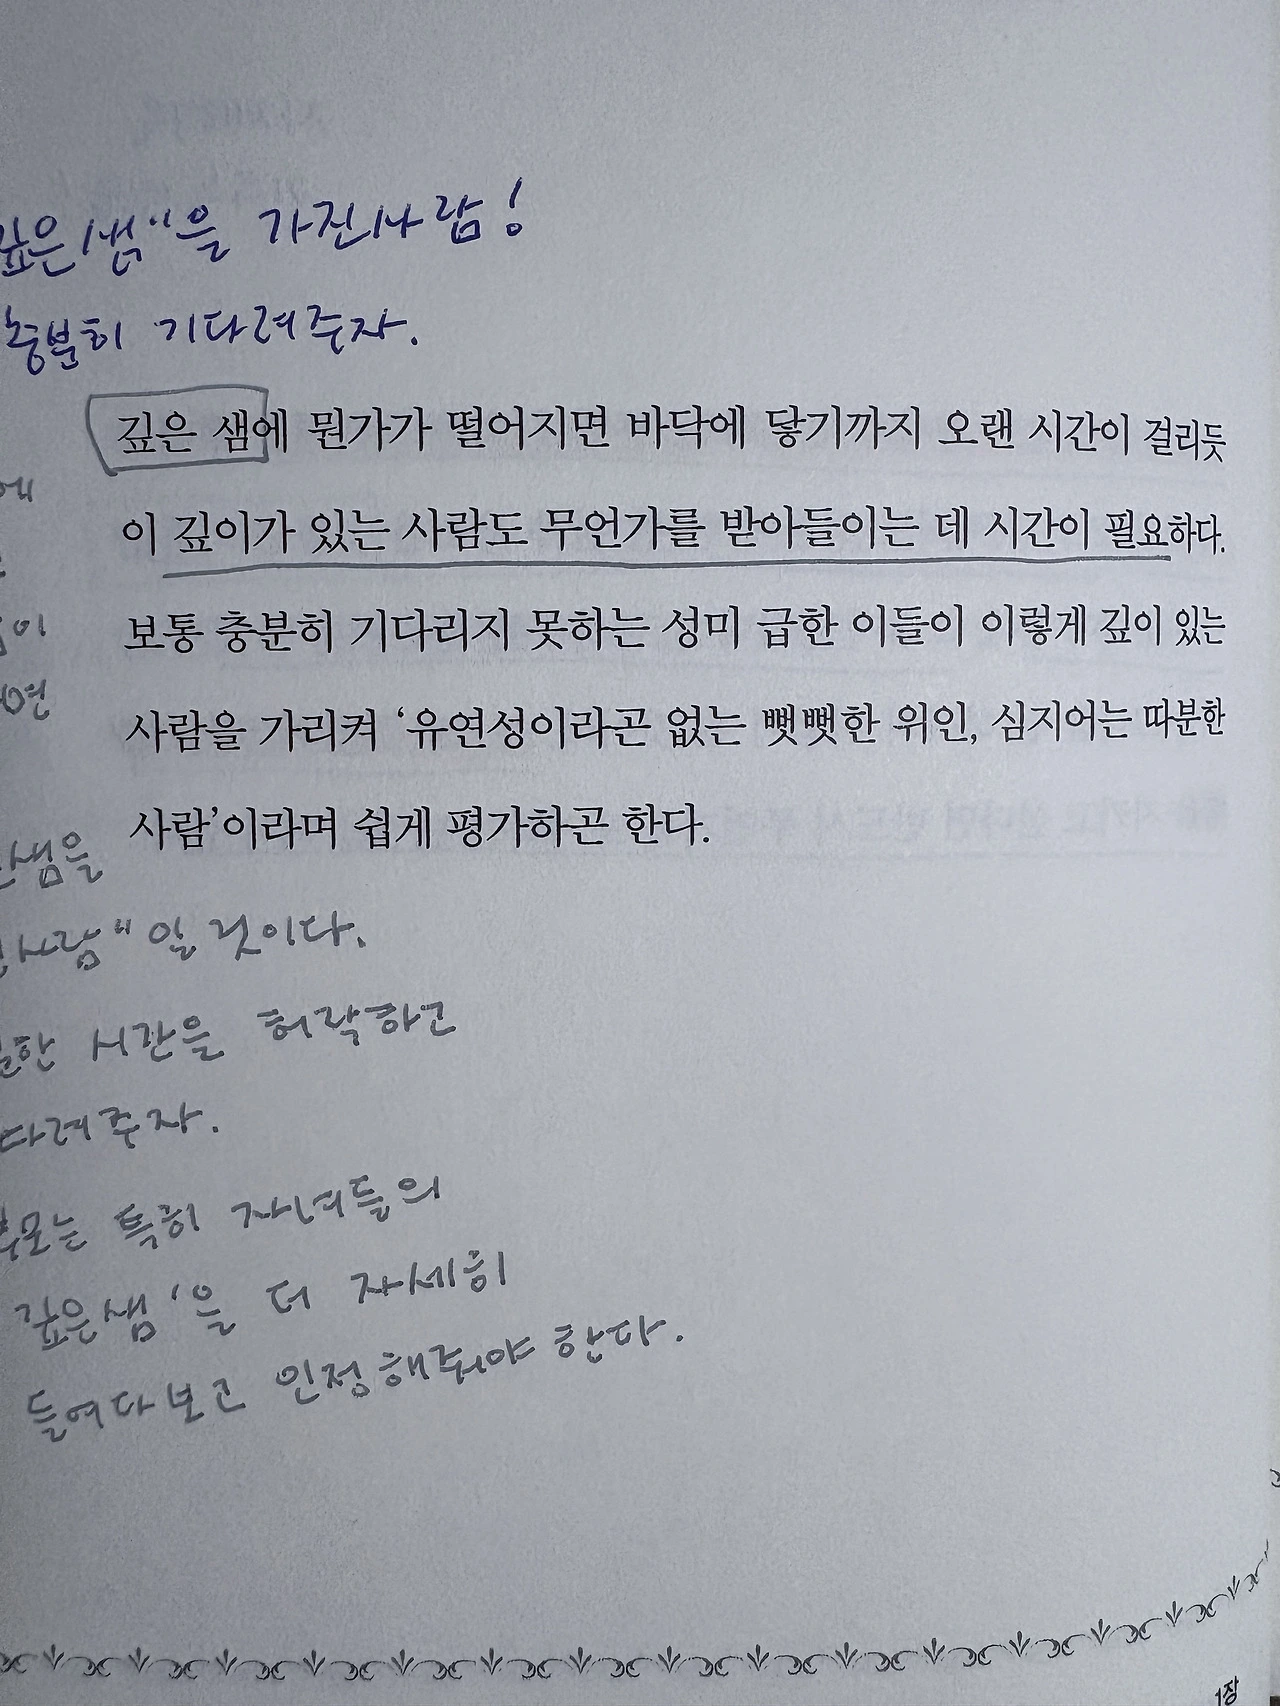 깊은샘"을 가진사람!
충분히 기다려주자.
깊은 샘에 뭔가가 떨어지면 바닥에 닿기까지 오랜 시간이 걸리듯
이 깊이가 있는 사람도 무언가를 받아들이는 데 시간이 필요하다.
보통 충분히 기다리지 못하는 성미 급한 이들이 이렇게 깊이 있는
사람을 가리켜 ‘유연성이라곤 없는 뻣뻣한 위인, 심지어는 따분한
사람’이라며 쉽게 평가하곤 한다.
샘을
사람"일 것이다.
시간을 허락하고
다려주자.
부모는 특히 자녀들의
깊은샘'을 더 자세히
들여다보고 인정해줘야 한다.
1장